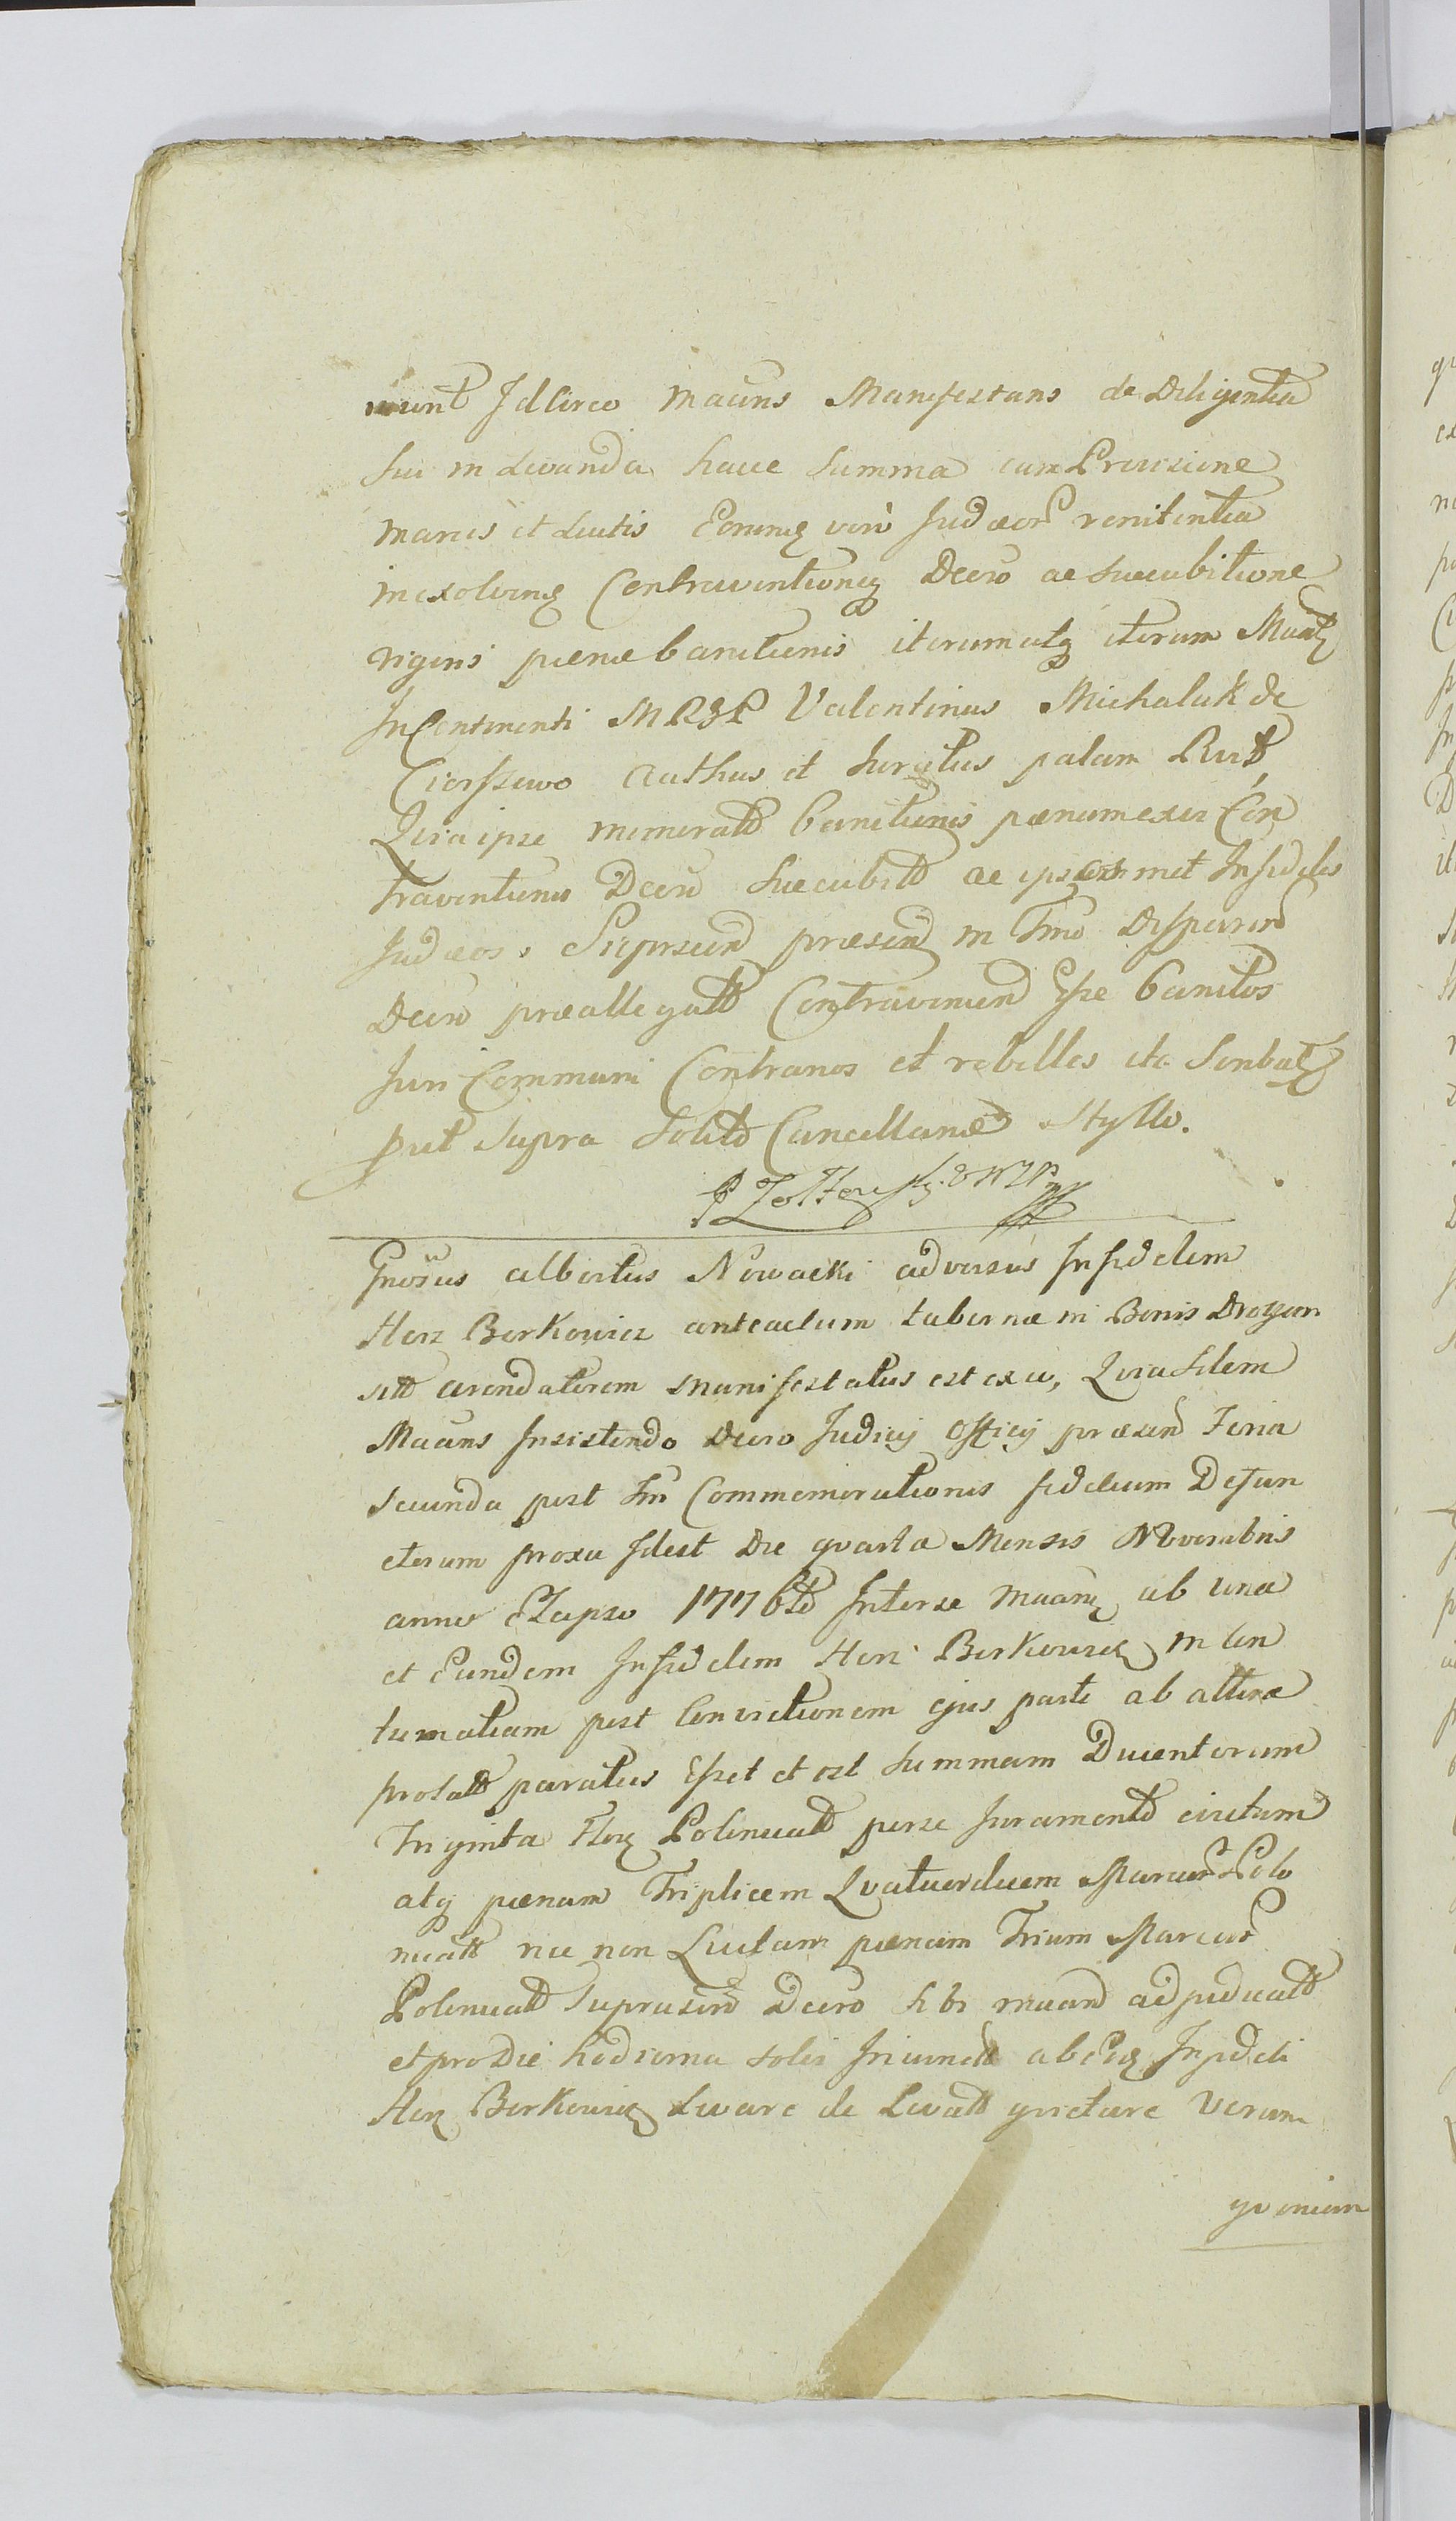 Idcirco Maãns Manifestans de Diligentia
sui in Levanda hacce Summa cum Provisione
marcis et Luitis Eorumq vero Judæor renitentia
inexolvene Contraventioneq Decro ac succubitione
vigens pænæ banitionis iterum atq iterum Maat
In Continenti MRSP Valentinus Michalak de
Cierszewo authus et Juratus palam
Quia ipse memoratt banitionis pænam exer Con
traventionis Decro succubitt ac ipsosmet Infideles
Judæos Suprscrip præsend in Tmo Disparen
Decro præallegatt Contravenien Esse banitos
Juri Communi Contrarios et rebelles ita
put supra Solito Cancellariæ Styllo.
Gnosus albertus Nowacki adversus Infidelem
Herz Berkowicz anteactum tabernæ in Bonis Drozgon
sitt arendatorem manifestatus est ex eo, Quia Idem
Maans Insistendo Decro Judicij Officij præsen Feria
secunda post fm Commemorationis fidelium Defun
ctorum proxa Idest Die qvarta Mensis Novembris
anno Elapso 1776to Inter se maanq ab una
et Eundem Infidelem Herz Berkowicz in Con
tumatiam post Convictionem ejus parte ab altera
prolatt paratus Esset et est summam Ducentorum
Triginta Florq Polonicatt per se Juramento evictam
atq pænam Triplicem Qvatuordecem Marcar Polo
nicatt nec non Luctam pænam Trium Marcar
Polonicatt Supruscrip Decro sibi maan adjudicatt
et pro Die hodierna solvi Iniunctt ab Eoq Infideli
Herz Berkowicz Levare de Levatt qvietare Verum
qvoniam